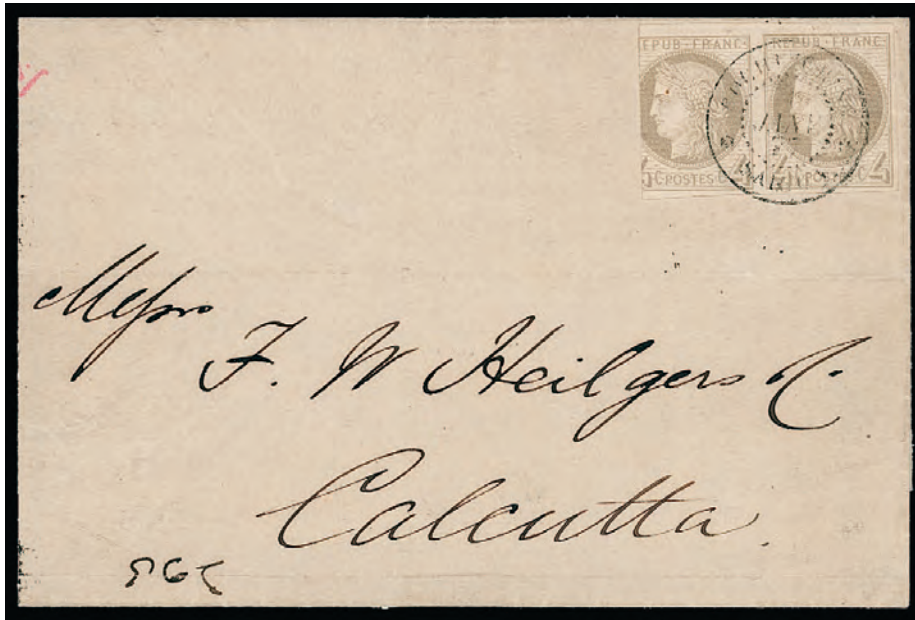 EPUB · FRANC · REPUB · FRANC ·
C POSTES C 4
4
Messrs
F. W Heilgers &C.
Calcutta.